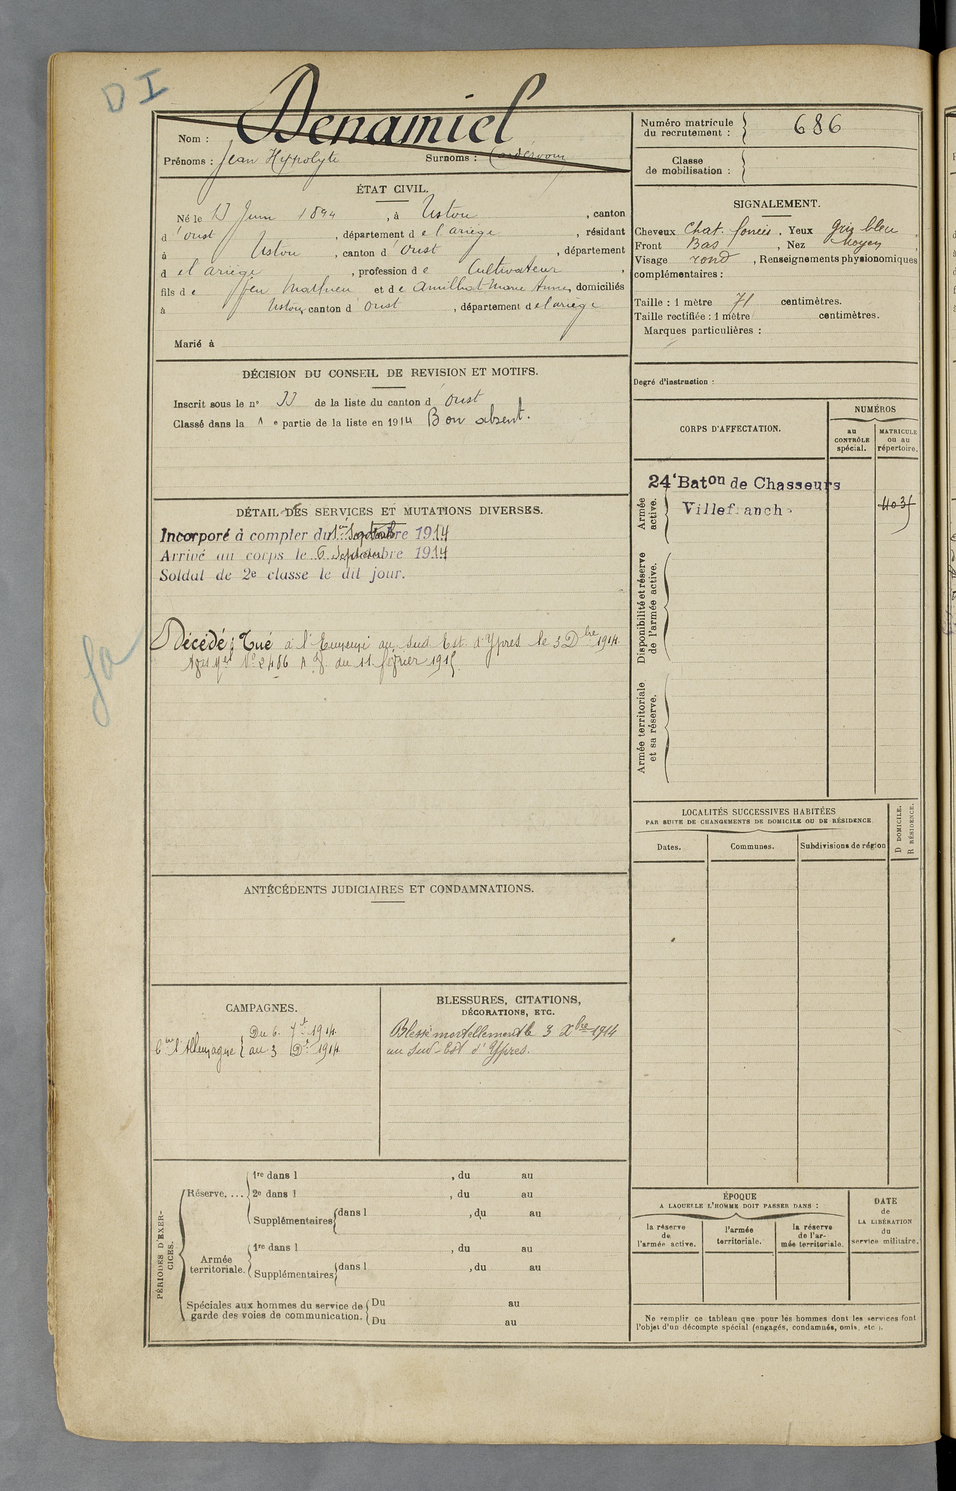 D I
Denamiel
Nom :
Prénoms : Jean Hyppolyte Surnoms :
Numéro matricule du recrutement : 686
Classe de mobilisation :
ÉTAT CIVIL.
Né le 13 Juin 1894, à Ustou, canton
d'oust, département de l'ariège, résidant
à Ustou, canton d'Oust, département
de l'ariège, profession de Cultivateur,
fils de feu Mathieu et de Amilhat Marie Anne, domiciliés
à Ustou, canton d'oust, département de l'ariège
Marié à
SIGNALEMENT.
Cheveux Chat. foncés, Yeux gris bleu,
Front Bas, Nez Moyen,
Visage rond, Renseignements physionomiques
complémentaires :
Taille : 1 mètre 71 centimètres.
Taille rectifiée : 1 mètre centimètres.
Marques particulières :
Degré d'instruction :
DÉCISION DU CONSEIL DE REVISION ET MOTIFS.
Inscrit sous le n° 33 de la liste du canton d'oust
Classé dans la 1e partie de la liste en 1914 Bon absent.
CORPS D'AFFECTATION.
NUMÉROS
au CONTRÔLE spécial.
MATRICULE ou au répertoire.
Armée active.
24e Baton de Chasseurs
Villefranche
4035
Disponibilité et réserve de l'armée active.
Armée territoriale et sa réserve.
DÉTAIL DES SERVICES ET MUTATIONS DIVERSES.
Incorporé à compter du 1er Septembre 1914
Arrivé au corps le 6 Septembre 1914
Soldat de 2e classe le dit jour.
Décédé; Tué à l'Ennemi au Sud Est d'Ypres le 3 Dbre 1914
Avis No 2486 du 11 février 1915
LOCALITÉS SUCCESSIVES HABITÉES
PAR SUITE DE CHANGEMENTS DE DOMICILE OU DE RÉSIDENCE
Dates.
Communes.
Subdivisions de région
D DOMICILE.
R RÉSIDENCE.
ANTÉCÉDENTS JUDICIAIRES ET CONDAMNATIONS.
CAMPAGNES.
Du 6 7bre 1914
Cgne d'Allemagne { au 3 Dbre 1914
BLESSURES, CITATIONS,
DÉCORATIONS, ETC.
Blessé mortellement le 3 Xbre 1914
au Sud-Est d'Ypres.
PÉRIODES D'EXERCICES.
Réserve....
1re dans l , du au
2e dans l , du au
Supplémentaires { dans l , du au
Armée territoriale.
1re dans l , du au
Supplémentaires { dans l , du au
Spéciales aux hommes du service de garde des voies de communication.
Du au
Du au
ÉPOQUE
A LAQUELLE L'HOMME DOIT PASSER DANS :
la réserve de l'armée active.
l'armée territoriale.
la réserve de l'armée territoriale.
DATE de LA LIBÉRATION du service militaire.
Ne remplir ce tableau que pour les hommes dont les services font
l'objet d'un décompte spécial (engagés, condamnés, omis, etc.).